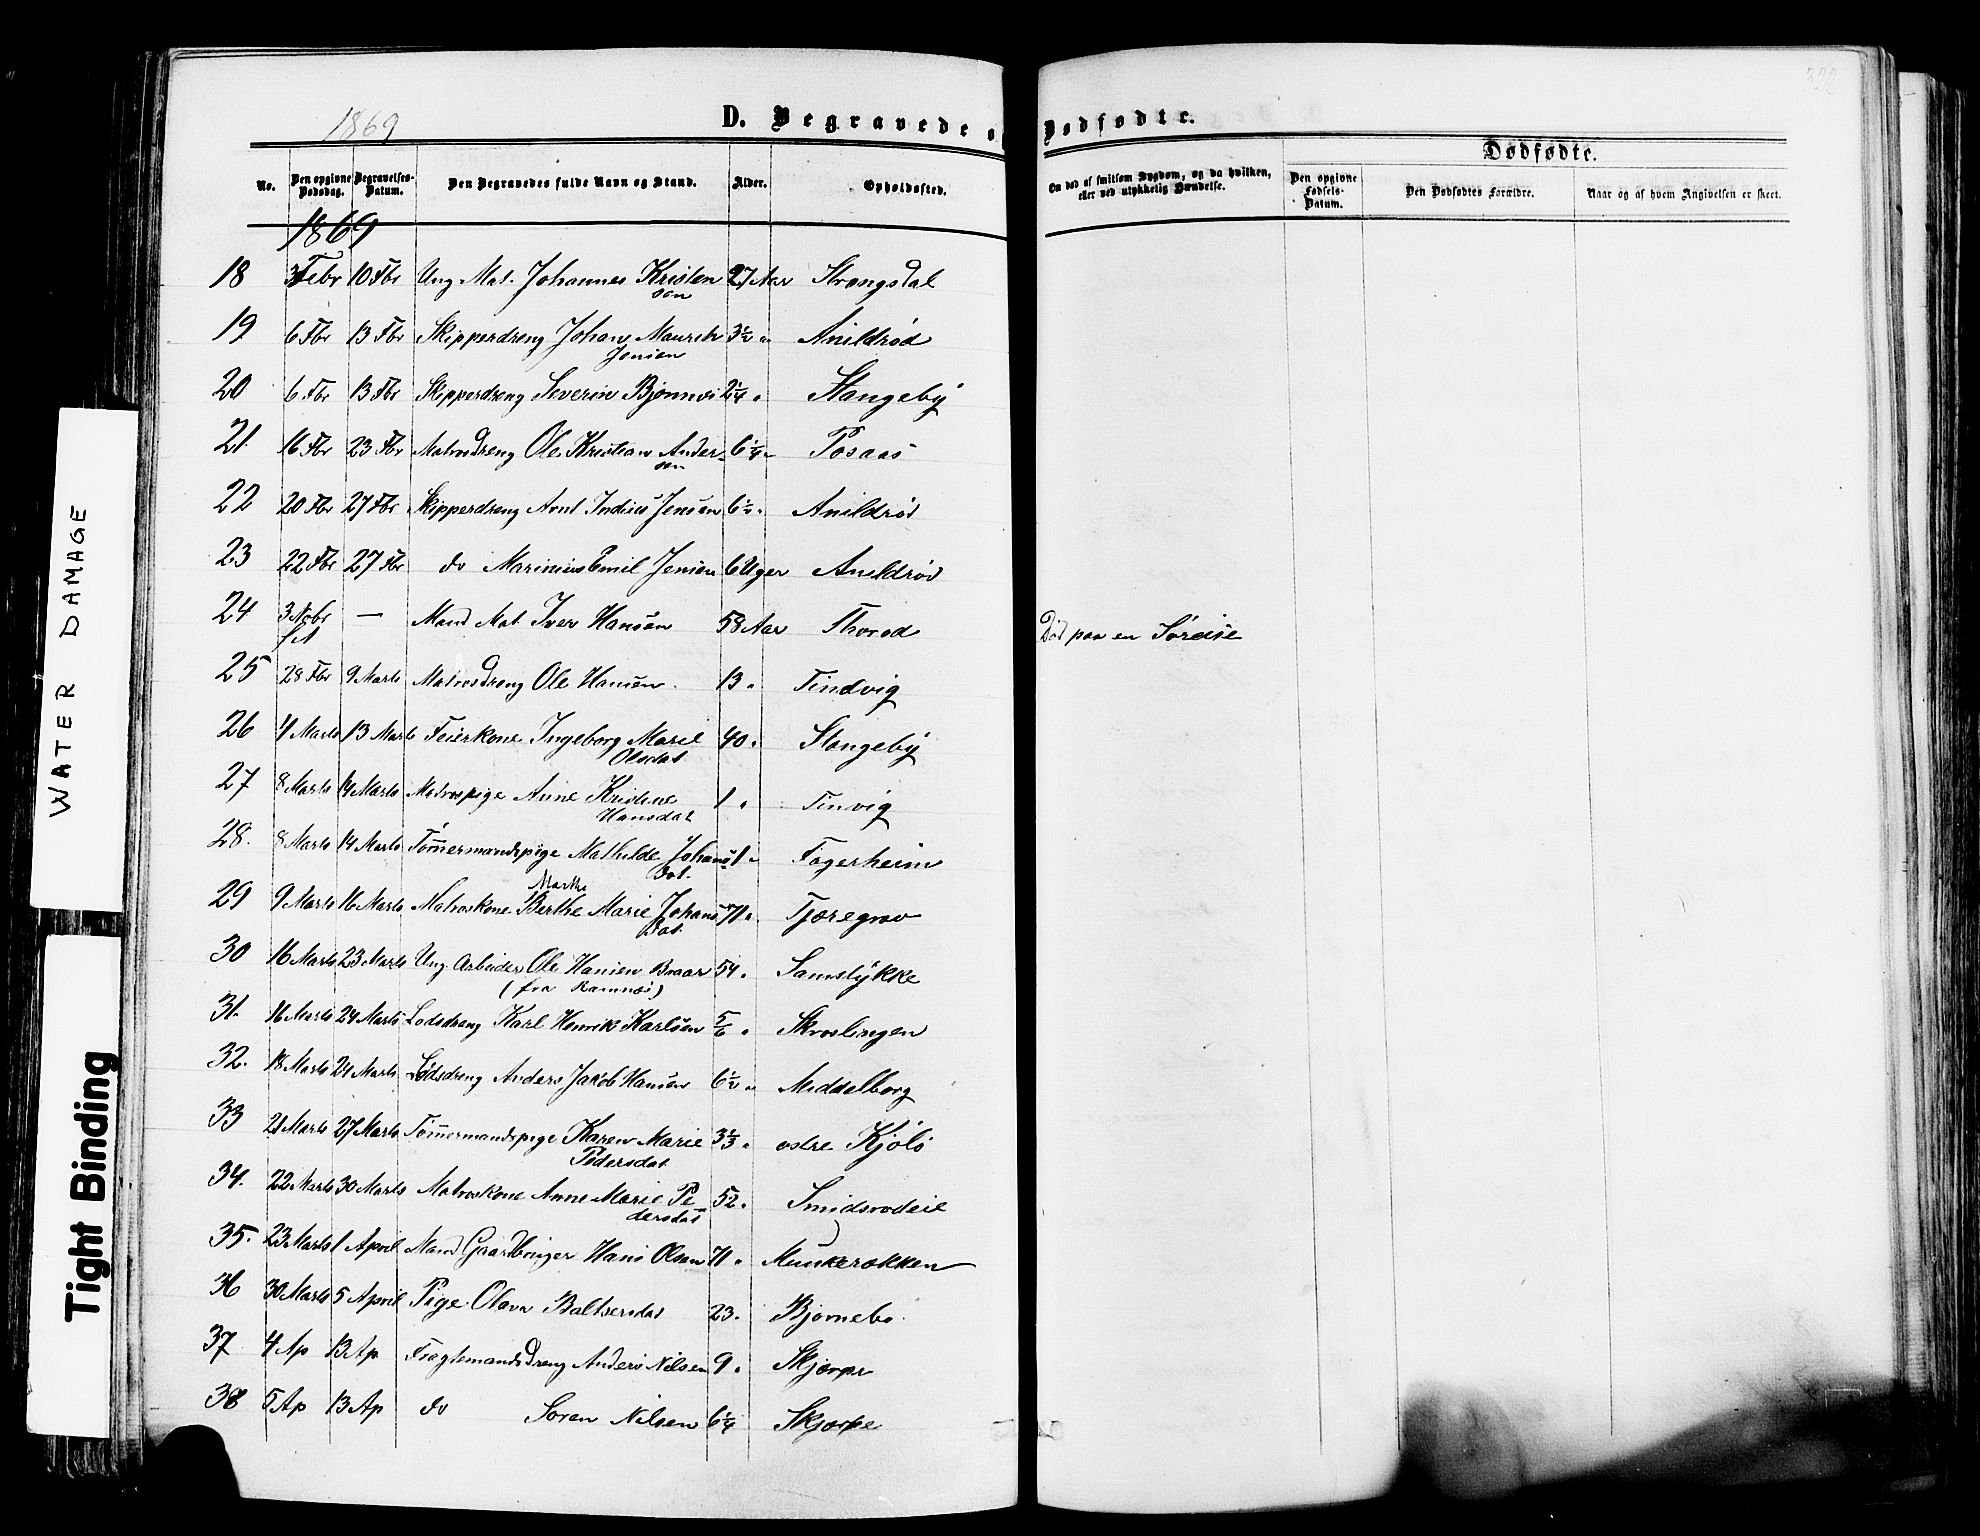 322
1869
D. Begravede o Dødfødte.
Dødfødte.
No. Den opgivne Dødsdag. Begravelses-Datum. Den Begravedes fulde Navn og Stand. Alder. Opholdssted. Om død af smitsom Sygdom, og da hvilken, eller ved ulykkelig Hændelse. Den opgivne Fødsels-Datum. Den Dødfødtes Forældre. Naar og af hvem Angivelsen er skeet.
1869
18 3 Febr 10 Fbr Ung Mat. Johannes Kristen 27 Aar Strangsdal
sen
19 6 Fbr 13 Fbr Skipperdreng Johan Mauritz 3½ " Anildrød
Jensen
20 6 Fbr 13 Fbr Skipperdreng Severin Bjønnes 2¼ " Stangeby
21. 16 Fbr 23 Fbr Matrosdreng Ole Kristian Ander- 6¼ " Posaas
sen
22 20 Fbr 27 Fbr Skipperdreng Arnt Jensen 6½ " Anildrød
23 22 Fbr 27 Fbr do Marinius Emil Jensen 6 Uger Anildrød
24 3 Nobr — Mand Mat. Iver Hansen 58 Aar Thorød Død paa en Søreise
f A
25 28 Fbr 9 Marts Matrosdreng Ole Hansen. 13 " Tindvig
26 4 Marts 13 Marts Feierkone Ingeborg Marie 40 " Stangeby
Olsdat.
27 8 Marts 14 Marts Matrospige Anne Kristine 1 " Tinvig
Hansdat
28. 8 Marts 14 Marts Tømmermandspige Mathilde Johans 1 " Fagerheim
dat.
Marthe
29 9 Marts 16 Marts Matroskone Berthe Marie Johans 71 " Tjæregrav
dat.
30 16 Marts 23 Marts Ung Arbeider Ole Hansen Braar 54 " Samslykke
(fra Ramnæs)
31. 16 Marts 24 Marts Lodsdreng Karl Henrik Karlsen 5/6 " Skraslingen
32. 18 Marts 24 Marts Lodsdreng Anders Jakob Hansen 6½ " Middelborg
33 21 Marts 27 Marts Tømmermandspige Karen Marie 3⅓ " østre Kjølø
Pedersdat
34. 22 Marts 30 Marts Matroskone Anne Marie Pe 52 " Smidsrødeie
dersdat
35. 23 Marts 1 April Mand Gaardbruger Hans Olsen 71 " Munkerøkken
36 30 Marts 5 April Pige Olava Baltsersdat 23. Bjørnebo
37 4 Ap 13 Ap Fragtemandsdreng Anders Nilsen 9 " Skjærpe
38 5 Ap 13 Ap do Søren Nilsen 6¼ Skjærpe
WATER DAMAGE
Tight Binding